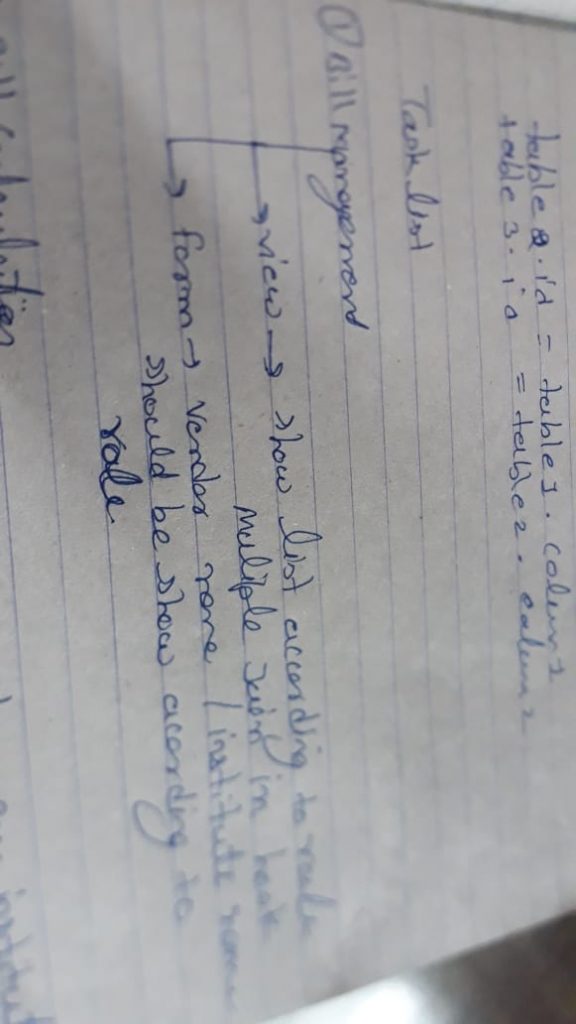 table 2.id = table1.column2
table 3.id = table2.column2
Task list
① Bill management
→ view → show list according to role
Multiple join in book
→ form → vendor name / institute name
should be show according to
role
bill calculation
institut